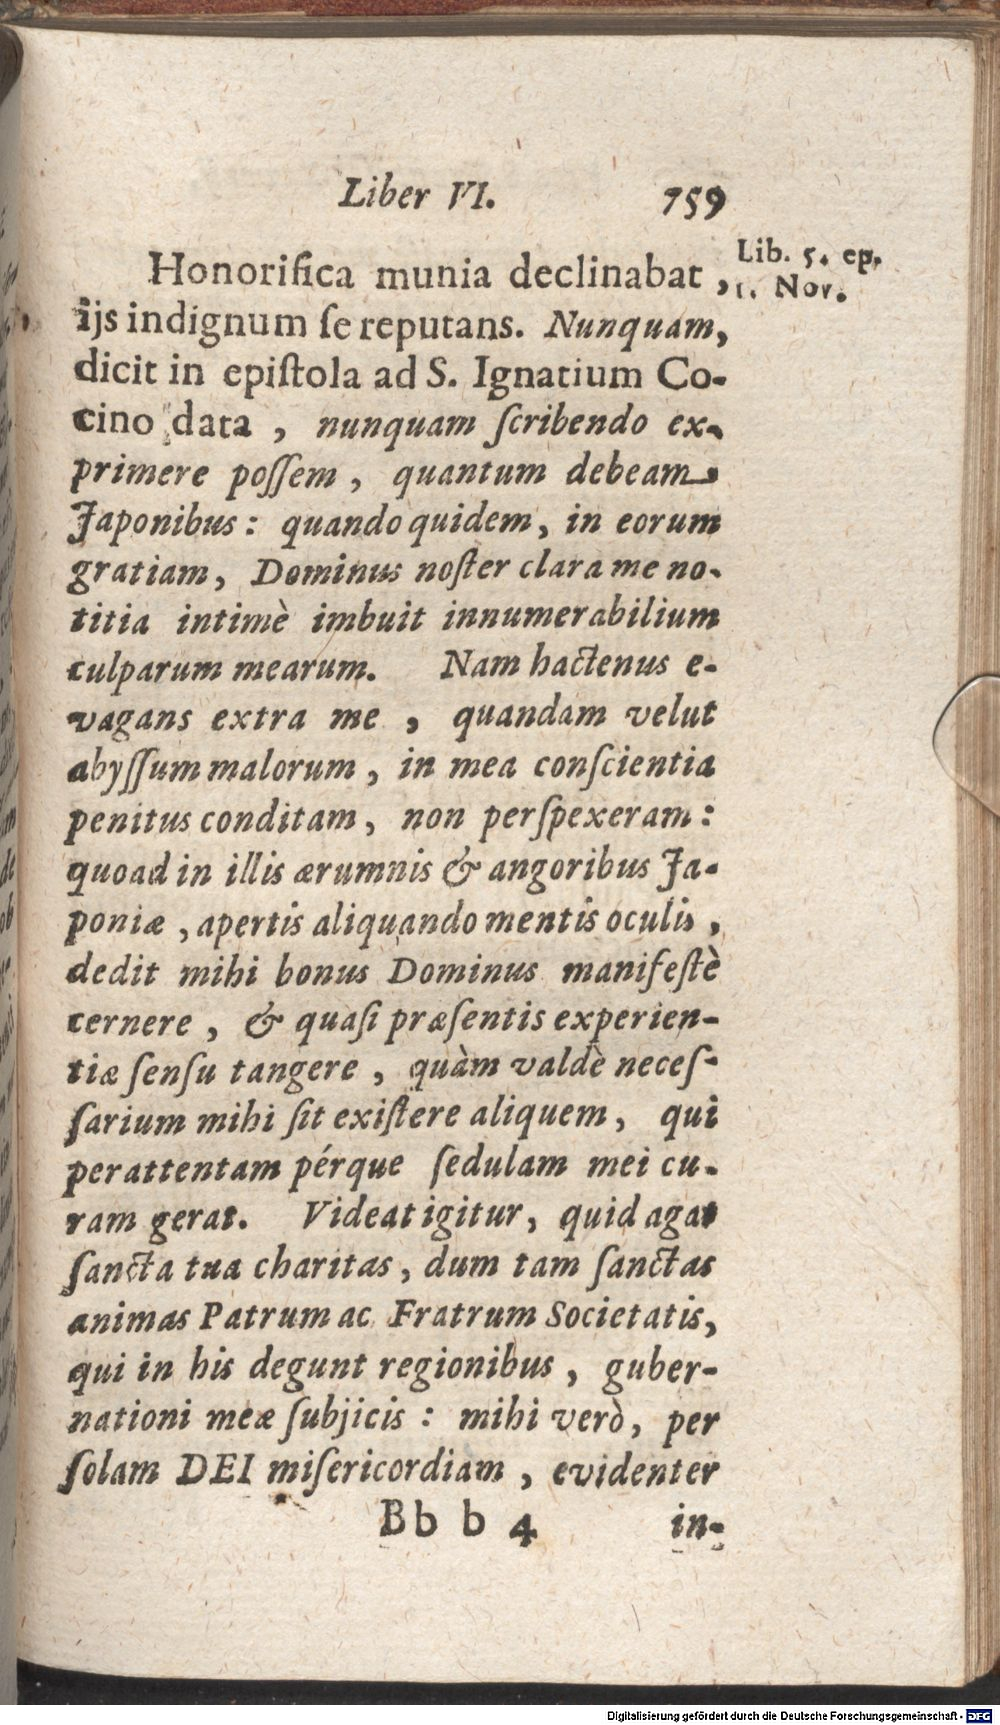 Liber VI. 759
Lib. 5. ep.
1. Nov.
Honorifica munia declinabat,
ijs indignum ſe reputans. Nunquam,
dicit in epiſtola ad S. Ignatium Co-
cino data, nunquam ſcribendo ex-
primere poſſem, quantum debeam
Japonibus: quandoquidem, in eorum
gratiam, Dominus noſter clara me no-
titia intimè imbuit innumerabilium
culparum mearum. Nam hactenus e-
vagans extra me, quandam velut
abyſſum malorum, in mea conſcientia
penitus conditam, non perſpexeram:
quoad in illis ærumnis & angoribus Ja-
poniæ, apertis aliquando mentis oculis,
dedit mihi bonus Dominus manifeſtè
cernere, & quaſi præſentis experien-
tiæ ſenſu tangere, quàm valdè neceſ-
ſarium mihi ſit exiſtere aliquem, qui
perattentam pérque ſedulam mei cu-
ram gerat. Videat igitur, quid agat
ſancta tua charitas, dum tam ſanctas
animas Patrum ac Fratrum Societatis,
qui in his degunt regionibus, guber-
nationi meæ ſubjicis: mihi verò, per
ſolam DEI miſericordiam, evidenter
Bb b 4 in-
Digitalisierung gefördert durch die Deutsche Forschungsgemeinschaft - DFG